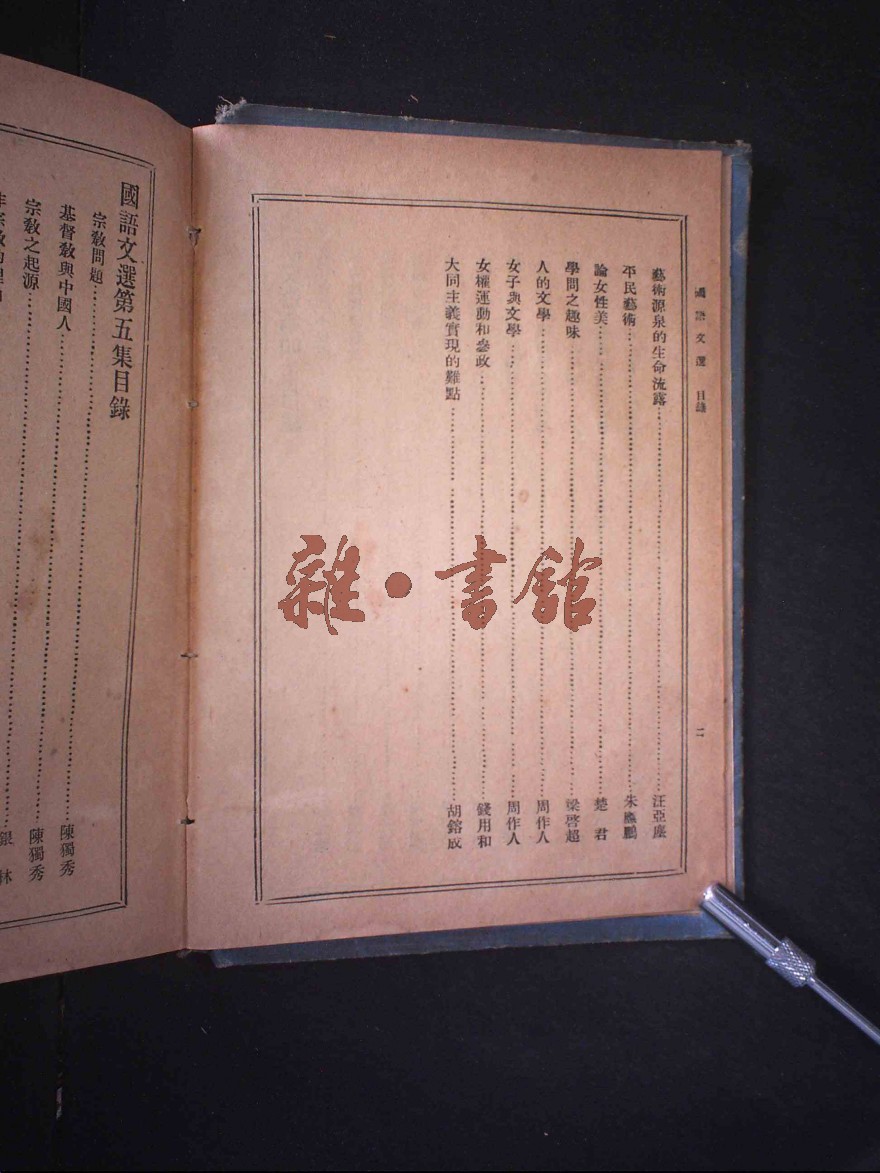 國語文選 目錄
二
藝術源泉的生命流露 汪亞塵
平民藝術 朱應鵬
論女性美 楚君
學問之趣味 梁啓超
人的文學 周作人
女子與文學 周作人
女權運動和參政 錢用和
大同主義實現的難點 胡鎔成
國語文選第五集目錄
宗教問題
基督教與中國人 陳獨秀
宗教之起源 陳獨秀
雜·書館